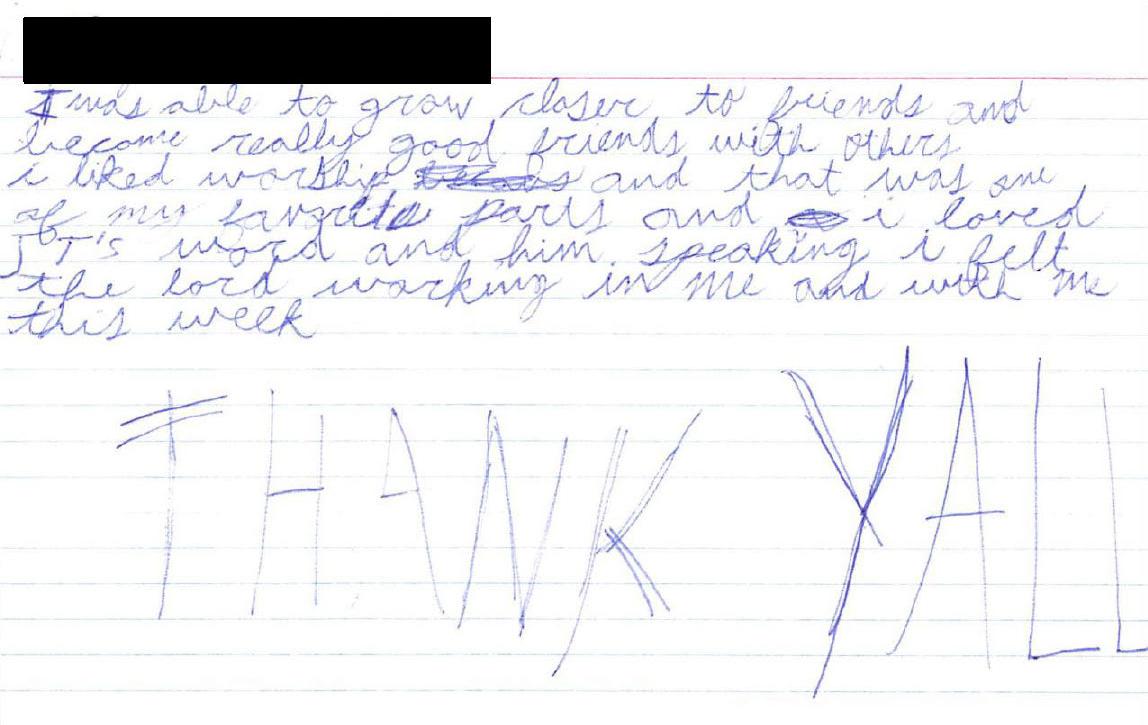 I was able to grow closer to friends and
become really good friends with others
i liked worship and that was one
of my favorite parts and i loved
JT's word and him speaking i felt
the lord working in me and with me
this week
THANK YALL